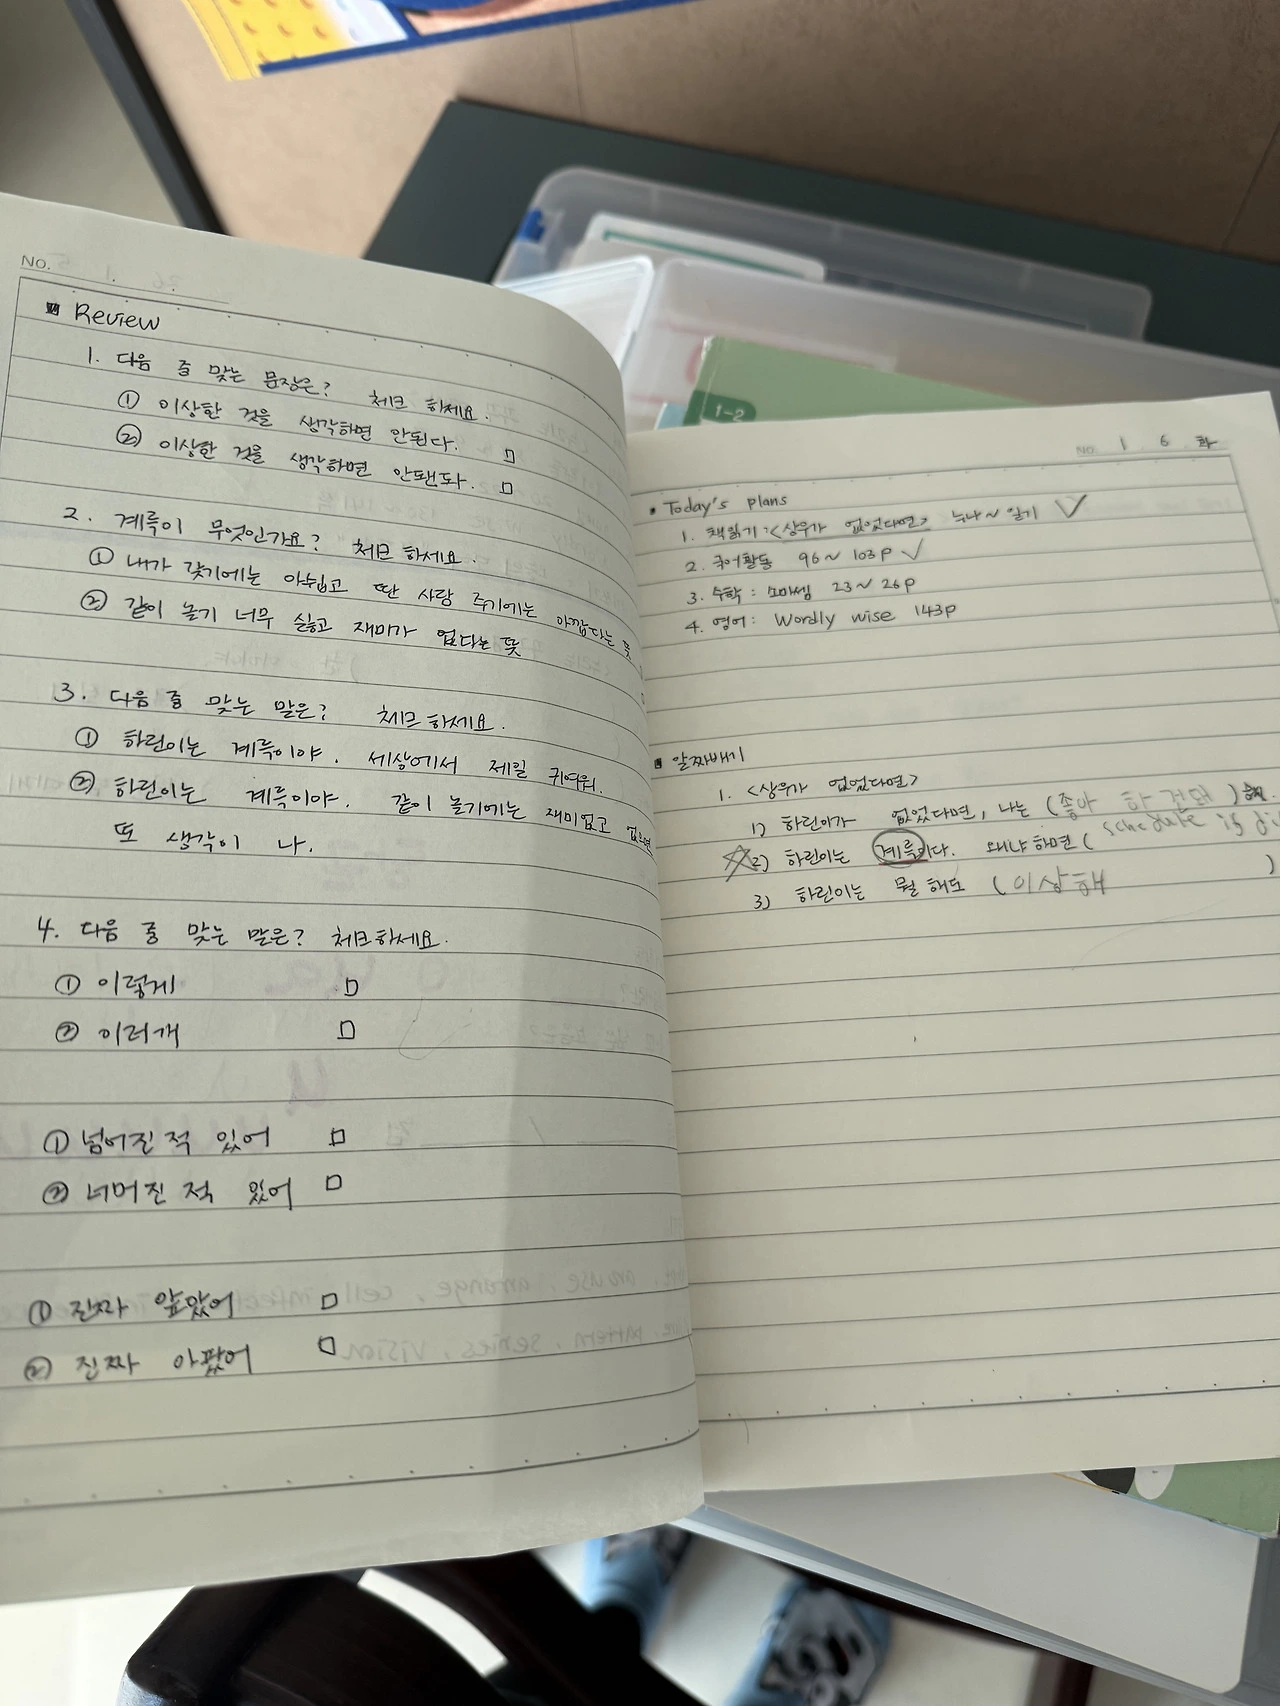 NO.
Review
1. 다음 중 맞는 문장은? 체크 하세요.
① 이상한 것을 생각하면 안된다. □
② 이상한 것을 생각하면 안됀다. □
2. 계륵이 무엇인가요? 체크 하세요.
① 내가 갖기에는 아쉽고 딴 사람 주기에는 아깝다는 뜻
② 같이 놀기 너무 싫고 재미가 없다는 뜻
3. 다음 중 맞는 말은? 체크하세요.
① 하린이는 계륵이야. 세상에서 제일 귀여워.
② 하린이는 계륵이야. 같이 놀기에는 재미없고 없으면
또 생각이 나.
4. 다음 중 맞는 말은? 체크하세요.
① 이렇게 □
② 이러개 □
① 넘어진 적 있어 □
② 너머진 적 있어 □
① 진짜 앞았어 □
② 진짜 아팠어 □
1-2
NO. 1 6 화
Today's plans
1. 책읽기 : <상우가 없었다면> 누나~ 일기 ✓
2. 국어활동 96~103p ✓
3. 수학 : 소마셈 23~26p
4. 영어 : Wordly wise 143p
알짜배기
1. <상우가 없었다면>
1) 하린이가 없었다면, 나는 (좋아 )
2) 하린이는 계륵이다. 왜냐하면 (schedule is
3) 하린이는 뭘 해도 (이상해 )